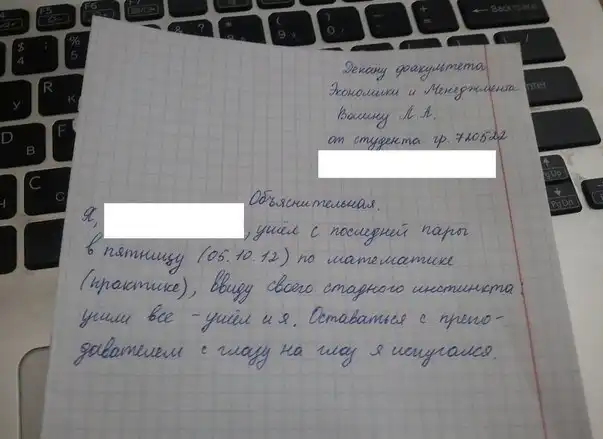 Декану факультета
Экономики и Менеджмента
Вашину А. А.
от студента гр. 720522
Объяснительная.
Я, , ушёл с последней пары
в пятницу (05.10.12) по математике
(практике), ввиду своего стадного инстинкта
ушли все - ушёл и я. Оставаться с препо-
давателем с глазу на глаз я испугался.